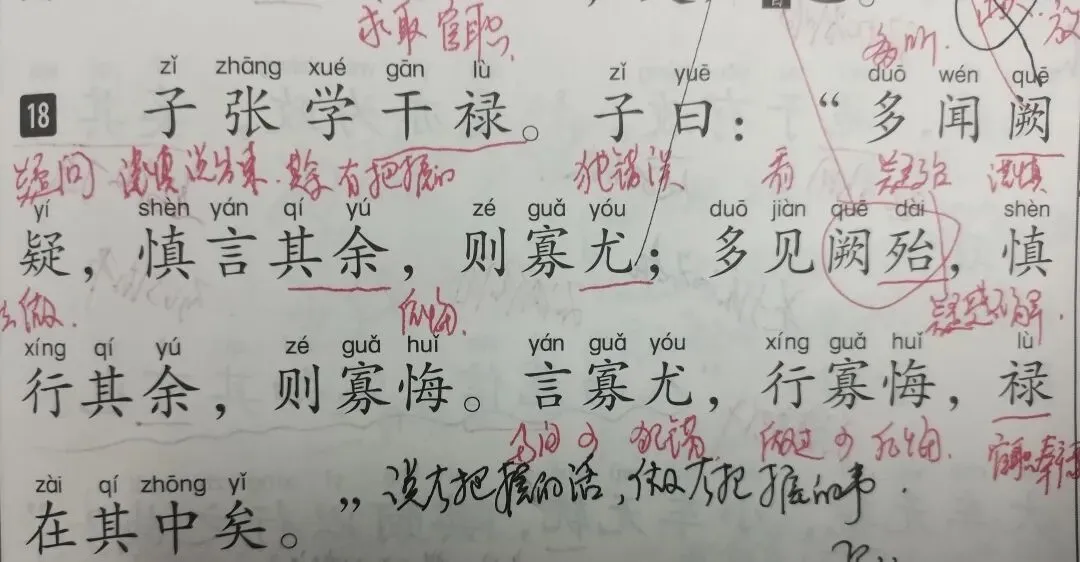 求取官职
多听.
zǐ zhāng xué gān lù zǐ yuē duō wén quē
18 子张学干禄。子曰：“多闻阙
疑问 谨慎 说出来. 其余有把握的 犯错误 看 疑殆 谨慎
yí shèn yán qí yú zé guǎ yóu duō jiàn quē dài shèn
疑，慎言其余，则寡尤；多见阙殆，慎
去做. 后悔. 疑惑不解.
xíng qí yú zé guǎ huǐ yán guǎ yóu xíng guǎ huǐ lù
行其余，则寡悔。言寡尤，行寡悔，禄
少 犯错. 做过少后悔. 官职
zài qí zhōng yǐ
在其中矣。”
说有把握的话，做有把握的事.